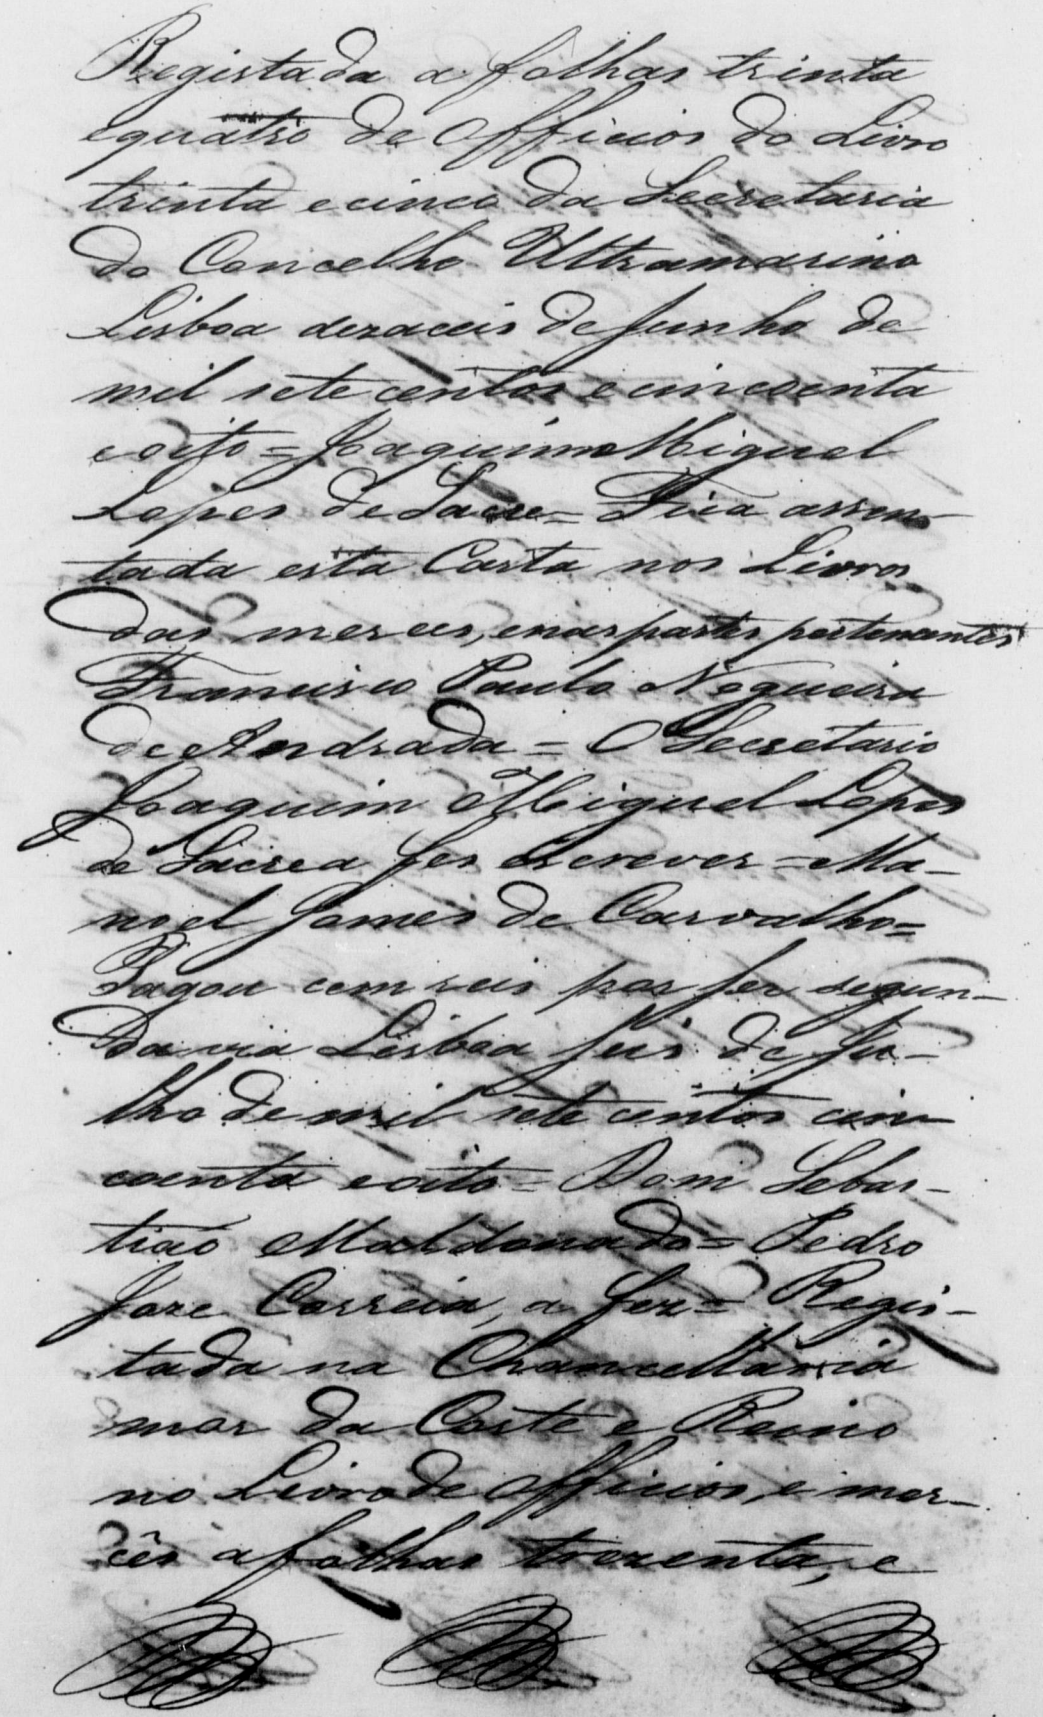 Registada a folhas trinta
equatro de Officios do Livro
trinta ecinco da Secretaria
do Concelho Ultramarino
Lisboa dezaceis de Junho de
mil sete centos e cincoenta
e oito = Joaquim Miguel
Lopes de Lacre = Fica assen-
tada esta Carta nos Livros
das merces, enas partes pertencentes
Francisco Paulo Nogueira
de Andrada = O Secretario
Joaquim Miguel Lopes
de Lacrea fes escrever = Ma-
noel Gomes de Carvalho =
Pagou cem reis por ser segun-
da via Lisboa seis de Ju-
lho de mil sete centos cin-
coenta e oito = Dom Sebas-
tiao Maldonado = Pedro
Joze Correia, a fez = Regis-
tada na Chancellaria
mor da Corte e Reino
no Livro de Officios, e mer-
cês a folhas trezenta, e